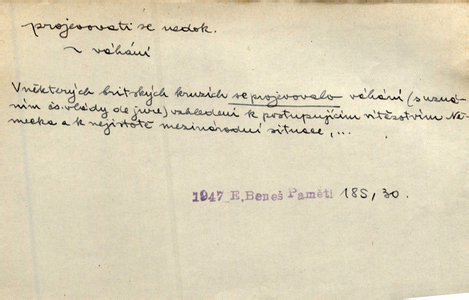 projevovati se nedok.
~ váhání
V některých britských kruzích se projevovalo váhání (s uzná-
ním čs. vlády de jure) vzhledem k postupujícím vítězstvím Ně-
mecka a k nejistotě mezinárodní situace, ...
1947 E. Beneš Paměti 185, 30.